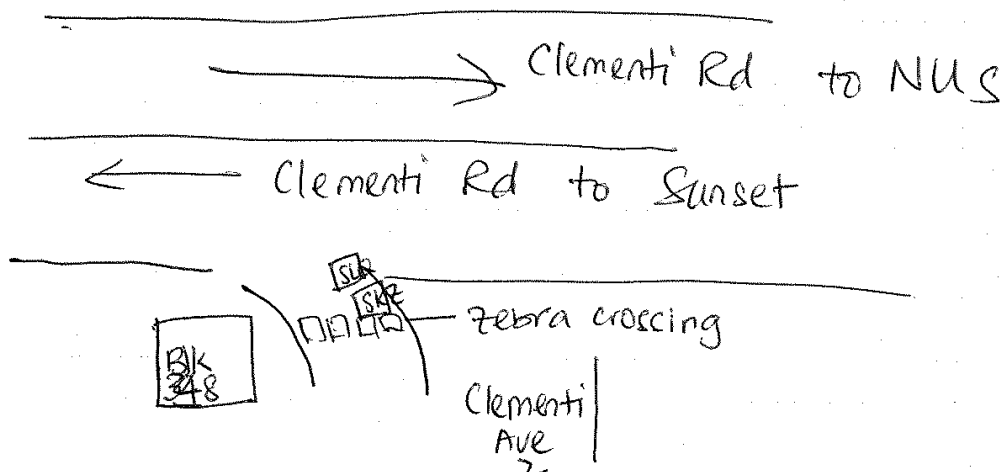 Clementi Rd to NUS
Clementi Rd to Sunset
SLR
SKZ
zebra crossing
Blk
348
Clementi
Ave